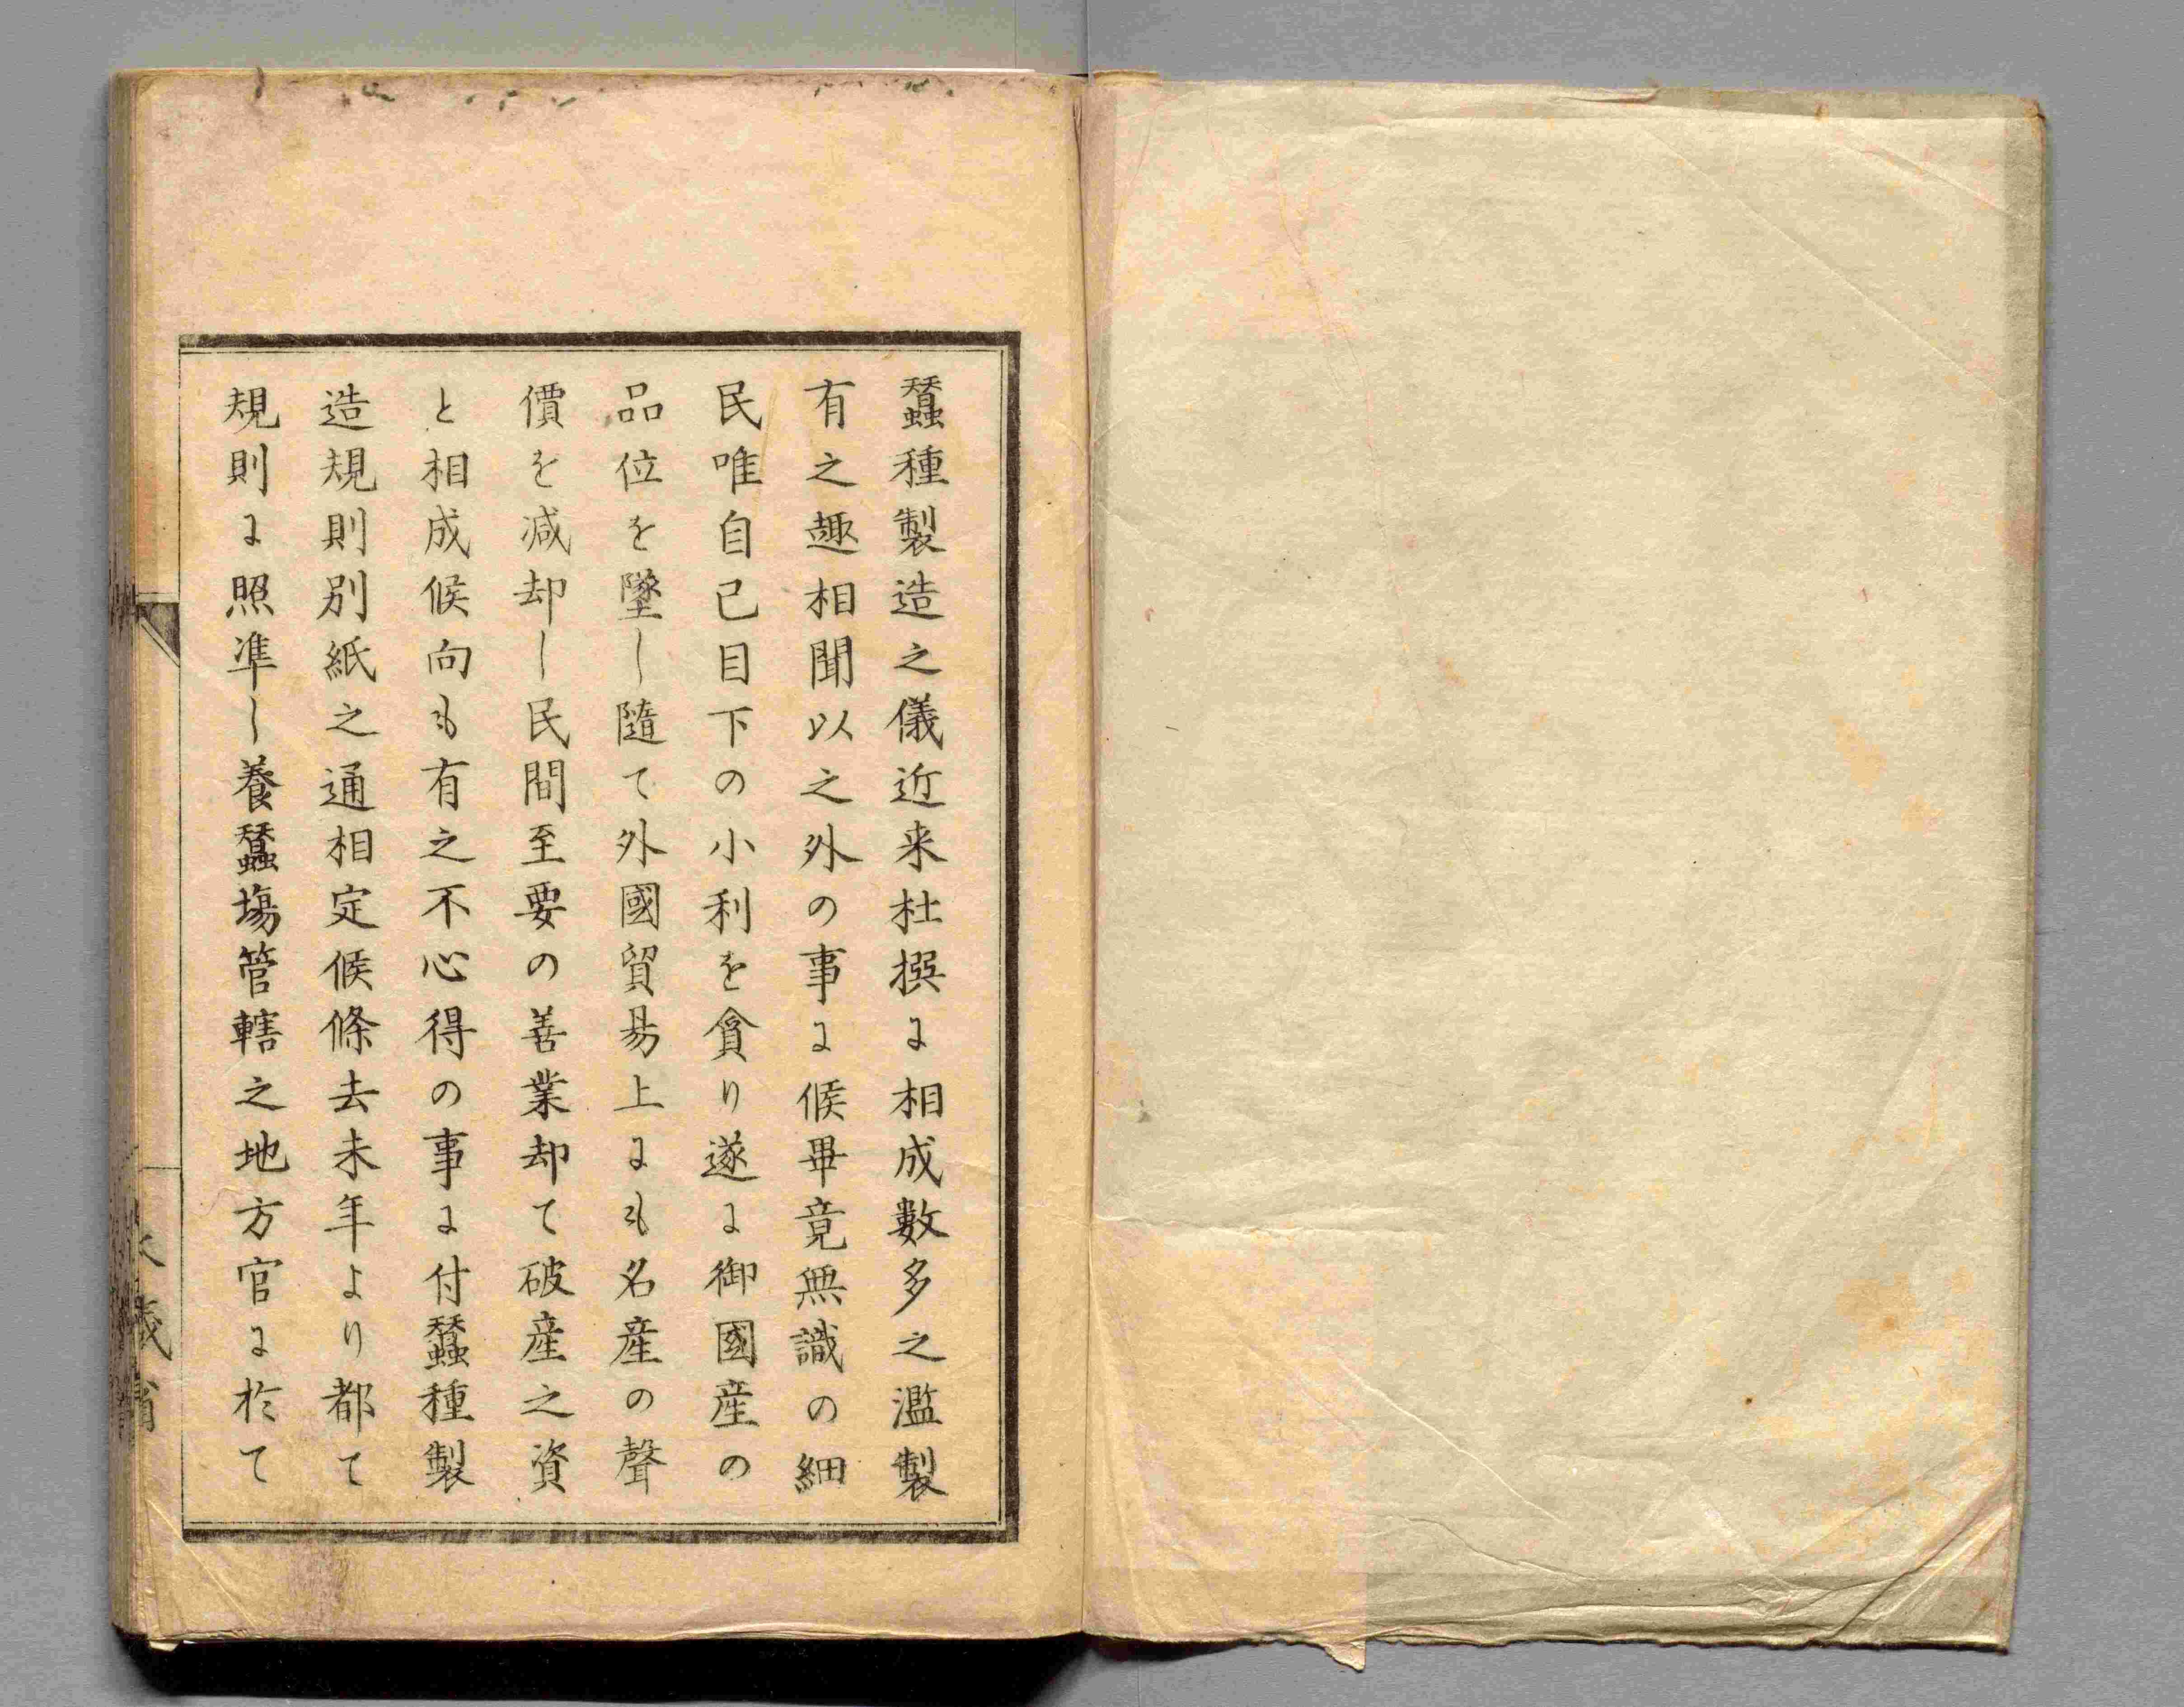 蠶種製造之儀近来杜撰に相成數多之濫製
有之趣相聞以之外の事に候畢竟無識の細
民唯自己目下の小利を貪り遂に御國産の
品位を墜し隨て外國貿易上にも名産の聲
價を减却し民間至要の善業却て破産之資
と相成候向も有之不心得の事に付蠶種製
造規則別紙之通相定候條去未年より都て
規則に照凖し養蠶塲管轄之地方官に於て